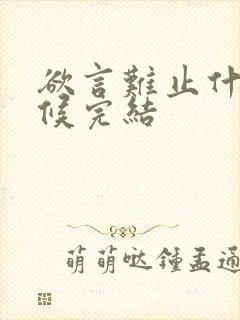 欲言難止什
候完結
萌萌哒鍾孟通